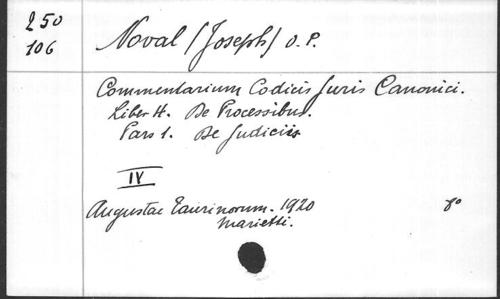 250
106
Noval (Joseph) O. P.
Commentarium Codicis Juris Canonici.
Liber IV. De Processibus.
Pars 1. De Judiciis
IV
Augustae Taurinorum. 1920
Marietti.
8°